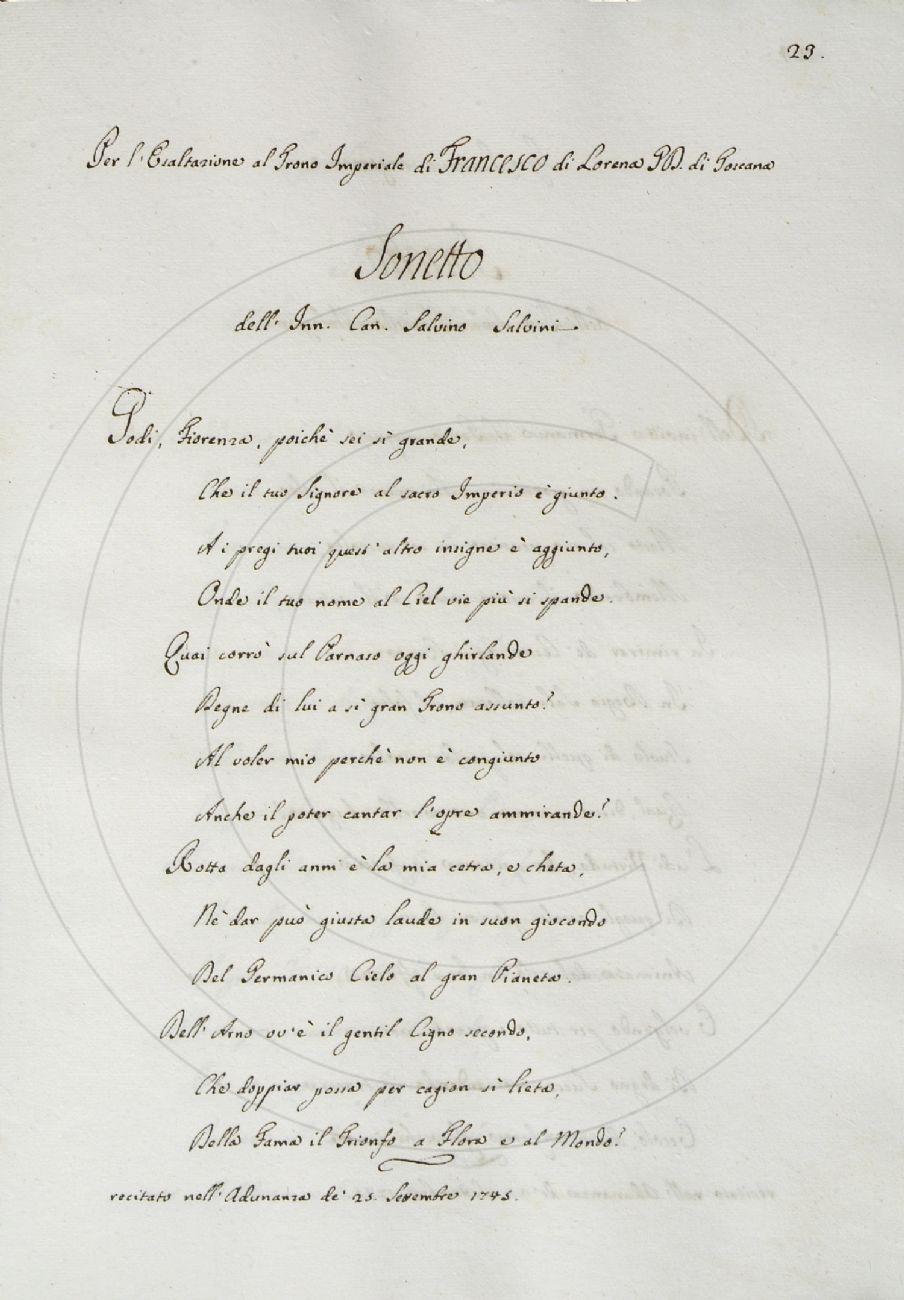 23.
Per l'Esaltazione al Trono Imperiale di Francesco di Lorena GD. di Toscana
Sonetto
dell' Inn. Can. Salvino Salvini
Godi, Fiorenza, poichè sei sì grande,
Che il tuo Signore al sacro Imperio è giunto.
A i pregi tuoi quest' altro insigne è aggiunto,
Onde il tuo nome al Ciel vie più si spande.
Quai corrò sul Parnaso oggi ghirlande
Degne di lui a sì gran Trono assunto?
Al voler mio perchè non è congiunto
Anche il poter cantar l'opre ammirande?
Rotta dagli anni è la mia cetra, e cheta,
Nè dar può giusta laude in suon giocondo
Del Germanico Cielo al gran Pianeta.
Dell' Arno ov' è il gentil Cigno secondo,
Che doppiar possa per cagion sì lieta,
Della Fama il Trionfo a Flora e al Mondo?
recitato nell' Adunanza de' 25. Settembre 1745.